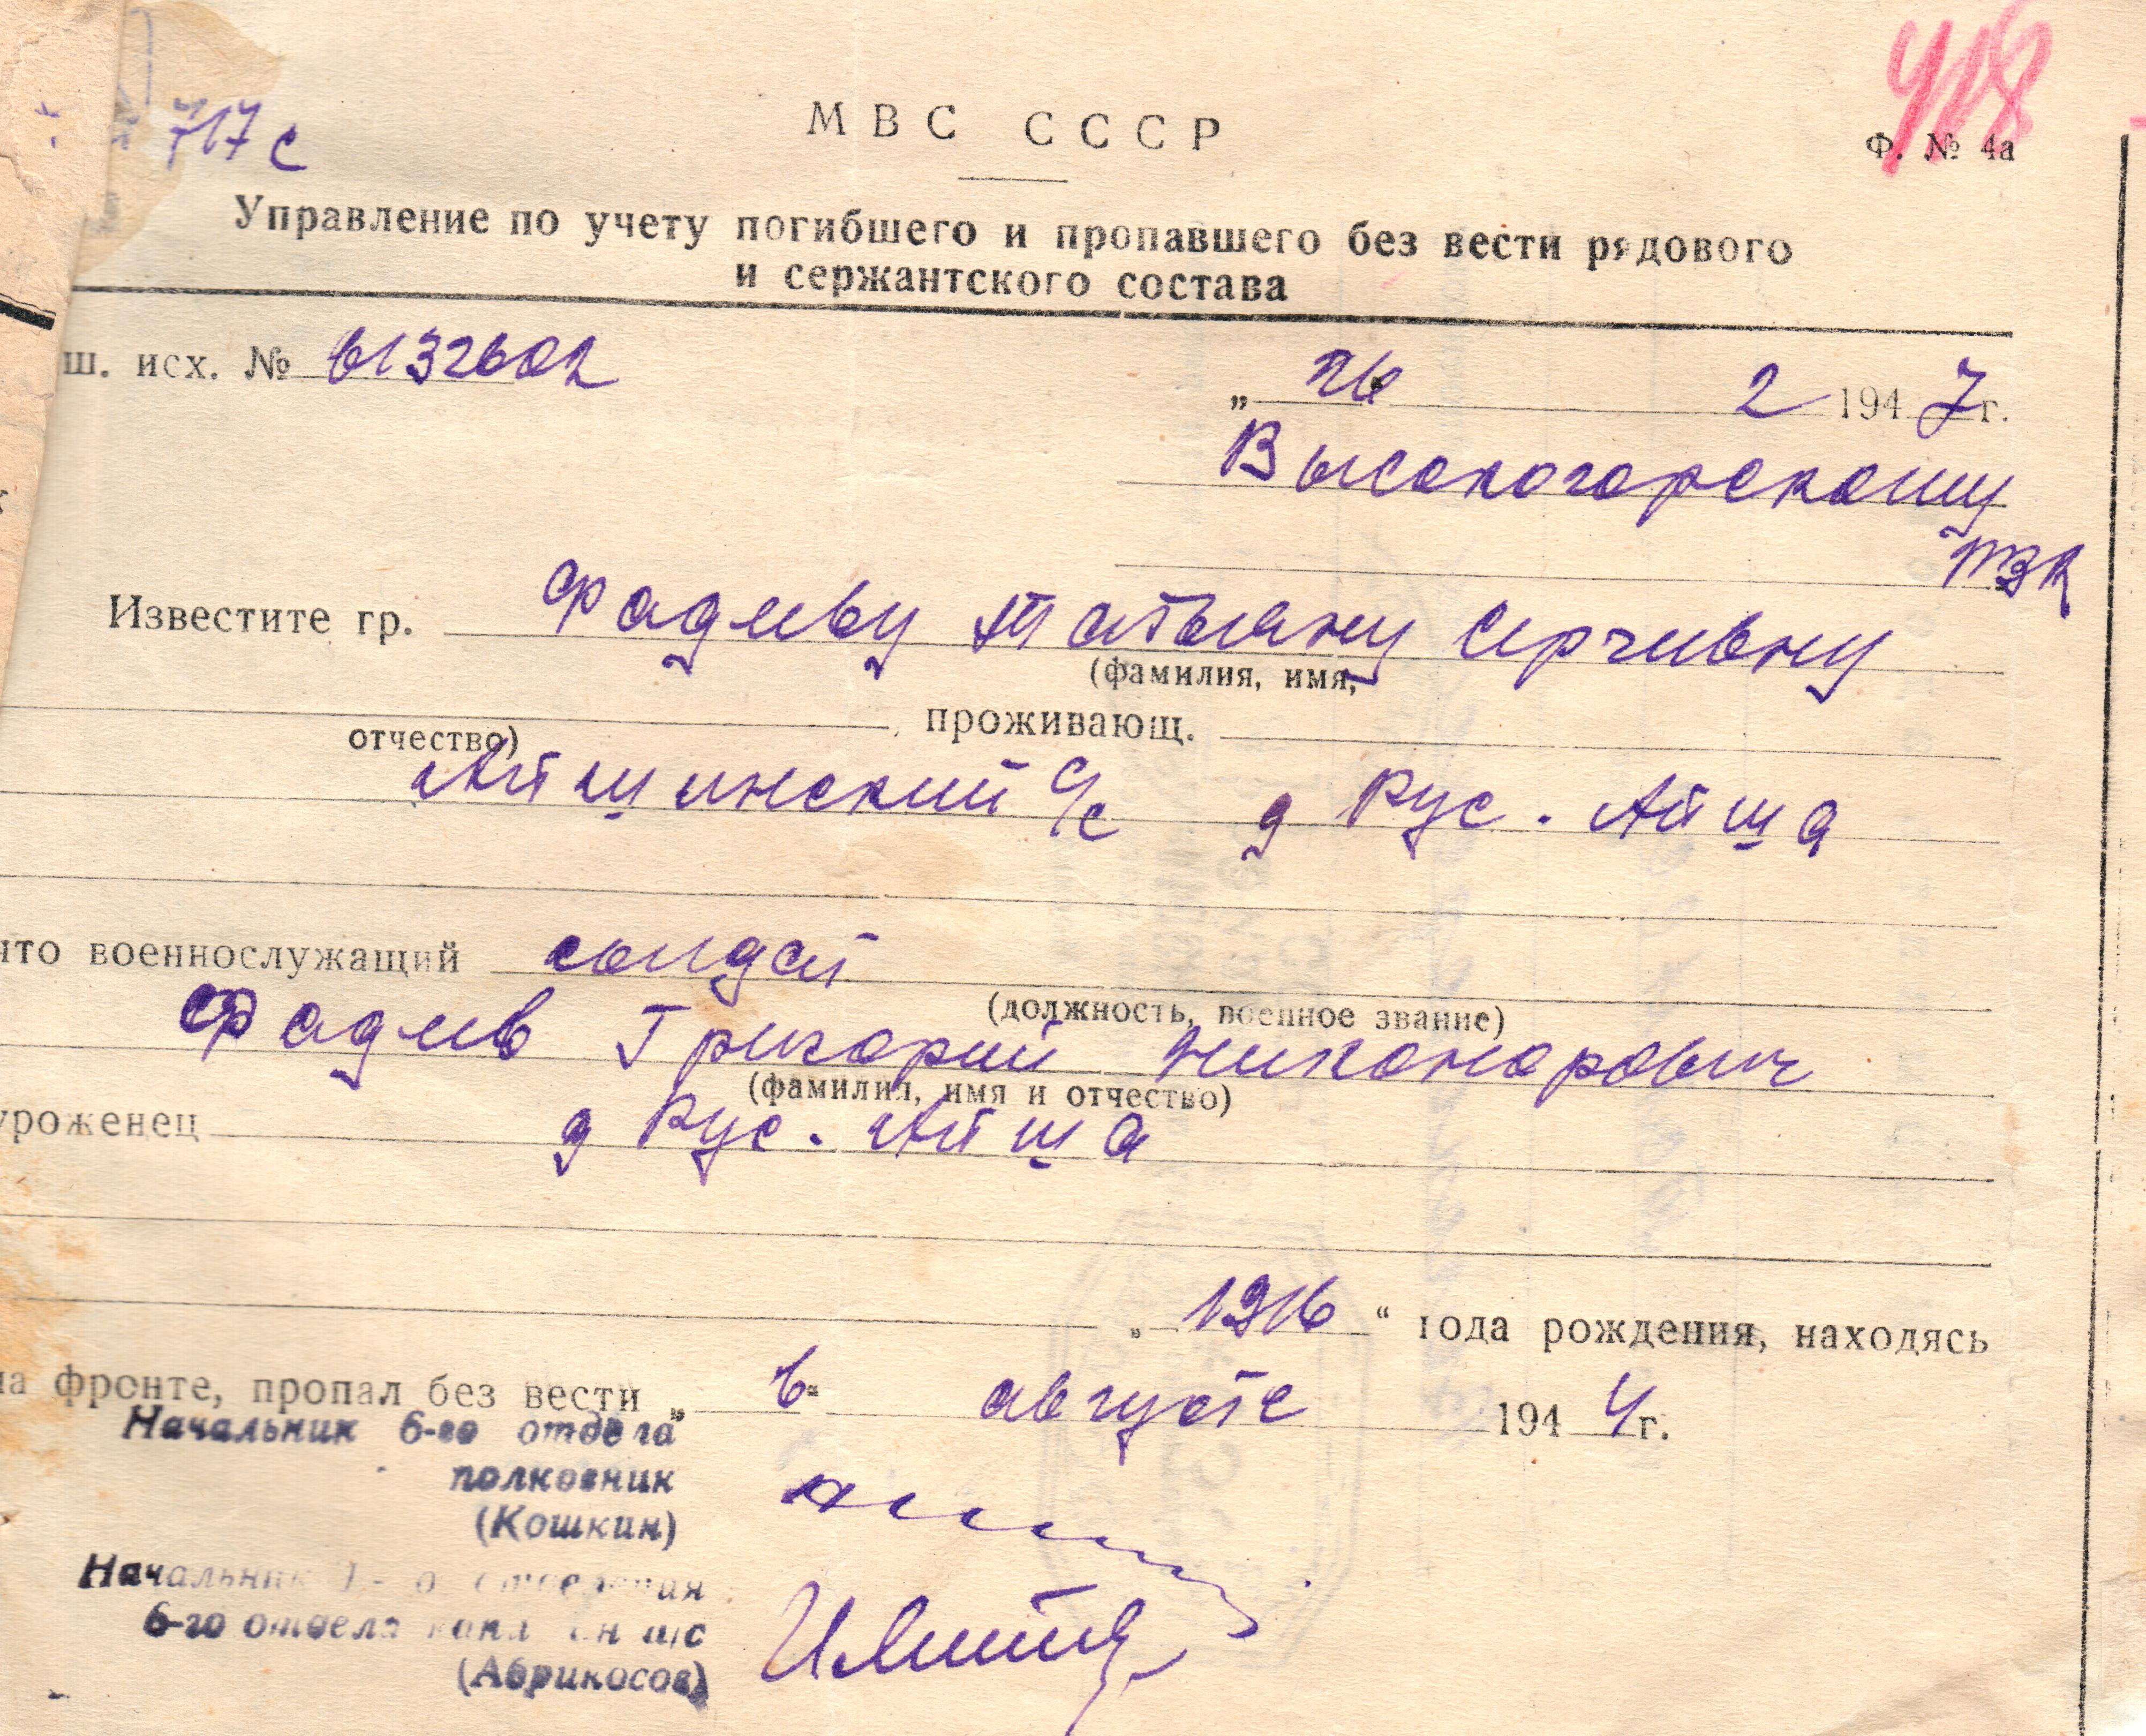 717с
МВС СССР
Ф. № 4а
Управление по учету погибшего и пропавшего без вести рядового
и сержантского состава
ш. исх. № 6132602
„ 26 2 1947 г.
Высокогорскому
РВК
Известите гр. Фадееву Татьяну Сергеевну
(фамилия, имя,
отчество) проживающ.
Айшинский с/с д Рус. Айша
что военнослужащий солдат
(должность, военное звание)
Фадеев Григорий Никонорович
(фамилия, имя и отчество)
уроженец д Рус. Айша
„ 1916 “ года рождения, находясь
на фронте, пропал без вести „ в августе 1944 г.
Начальник 6-го отдела
полковник
(Кошкин)
Начальник отделения
6-го отдела капитан а/с
(Абрикосов)